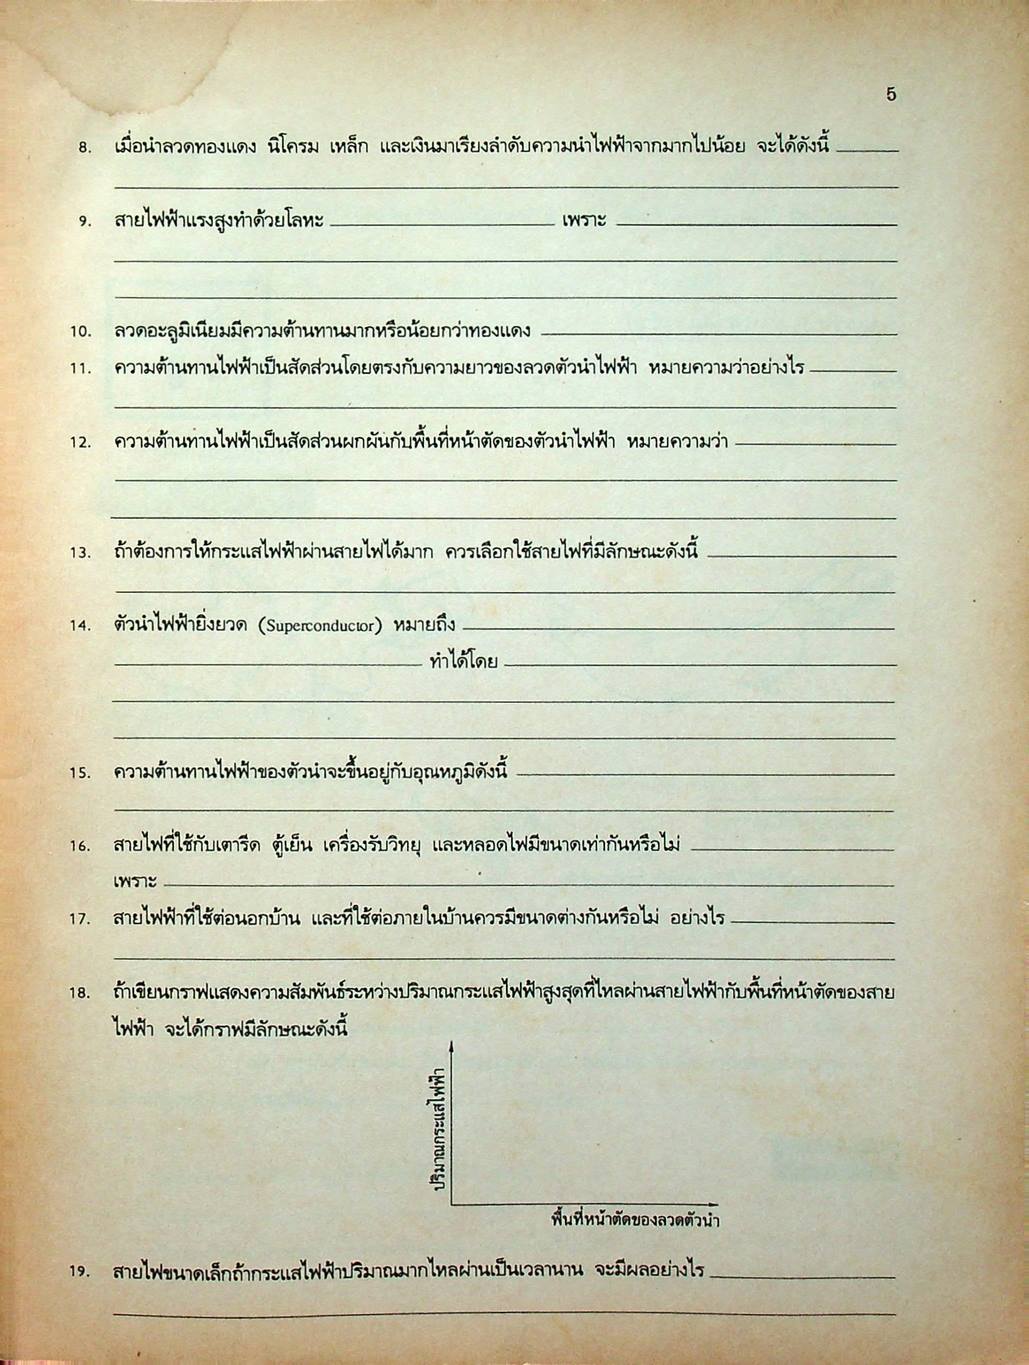 5
8. เมื่อนำลวดทองแดง นิโครม เหล็ก และเงินมาเรียงลำดับความนำไฟฟ้าจากมากไปน้อย จะได้ดังนี้
9. สายไฟฟ้าแรงสูงทำด้วยโลหะ เพราะ
10. ลวดอะลูมิเนียมมีความต้านทานมากหรือน้อยกว่าทองแดง
11. ความต้านทานไฟฟ้าเป็นสัดส่วนโดยตรงกับความยาวของลวดตัวนำไฟฟ้า หมายความว่าอย่างไร
12. ความต้านทานไฟฟ้าเป็นสัดส่วนผกผันกับพื้นที่หน้าตัดของตัวนำไฟฟ้า หมายความว่า
13. ถ้าต้องการให้กระแสไฟฟ้าผ่านสายไฟได้มาก ควรเลือกใช้สายไฟที่มีลักษณะดังนี้
14. ตัวนำไฟฟ้ายิ่งยวด (Superconductor) หมายถึง
ทำได้โดย
15. ความต้านทานไฟฟ้าของตัวนำจะขึ้นอยู่กับอุณหภูมิดังนี้
16. สายไฟที่ใช้กับเตารีด ตู้เย็น เครื่องรับวิทยุ และหลอดไฟมีขนาดเท่ากันหรือไม่
เพราะ
17. สายไฟฟ้าที่ใช้ต่อนอกบ้าน และที่ใช้ต่อภายในบ้านควรมีขนาดต่างกันหรือไม่ อย่างไร
18. ถ้าเขียนกราฟแสดงความสัมพันธ์ระหว่างปริมาณกระแสไฟฟ้าสูงสุดที่ไหลผ่านสายไฟฟ้ากับพื้นที่หน้าตัดของสาย
ไฟฟ้า จะได้กราฟมีลักษณะดังนี้
ปริมาณกระแสไฟฟ้า
พื้นที่หน้าตัดของลวดตัวนำ
19. สายไฟขนาดเล็กถ้ากระแสไฟฟ้าปริมาณมากไหลผ่านเป็นเวลานาน จะมีผลอย่างไร